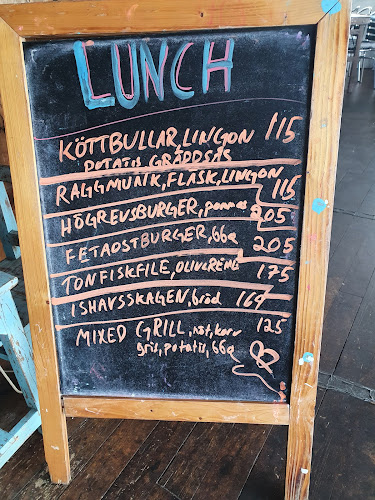 LUNCH
KÖTTBULLAR, LINGON 115
POTATIS GRÄDDSÅS
RAGGMUNK, FLÄSK, LINGON 115
HÖGREVSBURGER, pommes 205
FETAOSTBURGER, bbq 205
TONFISKFILE, OLIVCREME 175
ISHAVSSKAGEN, bröd 169
MIXED GRILL, nöt, korv 125
gris, potatis, bbq